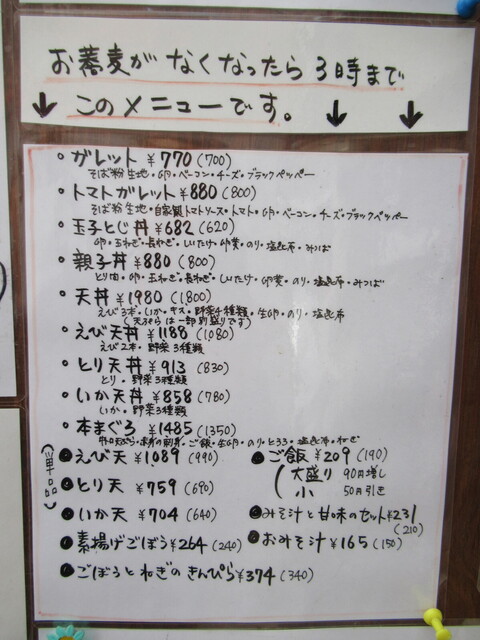 お蕎麦がなくなったら3時まで
↓このメニューです。↓ ↓
・ガレット ¥770(700)
そば粉生地・卵・ベーコン・チーズ・ブラックペッパー
・トマトガレット¥880(800)
そば粉生地・自家製トマトソース・トマト・卵・ベーコン・チーズ・ブラックペッパー
・玉子とじ丼¥682(620)
卵・玉ねぎ・長ねぎ・しいたけ・卵黄・のり・塩昆布・みつば
・親子丼¥880(800)
とり肉・卵・玉ねぎ・長ねぎ・しいたけ・卵黄・のり・塩昆布・みつば
・天丼¥1980(1,800)
えび3本・いか・キス・野菜4種類・生卵・のり・塩昆布
(天ぷらは一部別盛りです)
・えび天丼¥1188(1080)
えび2本・野菜3種類
・とり天丼¥913(830)
とり・野菜3種類
・いか天丼¥858(780)
いか・野菜3種類
・本まぐろ¥1485(1350)
ご飯・生卵・のり・とろろ・塩昆布・ねぎ
(単品)
●えび天¥1,089(990)
●とり天¥759(690)
●いか天¥704(640)
●素揚げごぼう¥264(240)
●ごぼうとねぎのきんぴら¥374(340)
●ご飯¥209(190)
(大盛り 90円増し
小 50円引き
●みそ汁と甘味のセット¥231
(210)
●おみそ汁¥165(150)